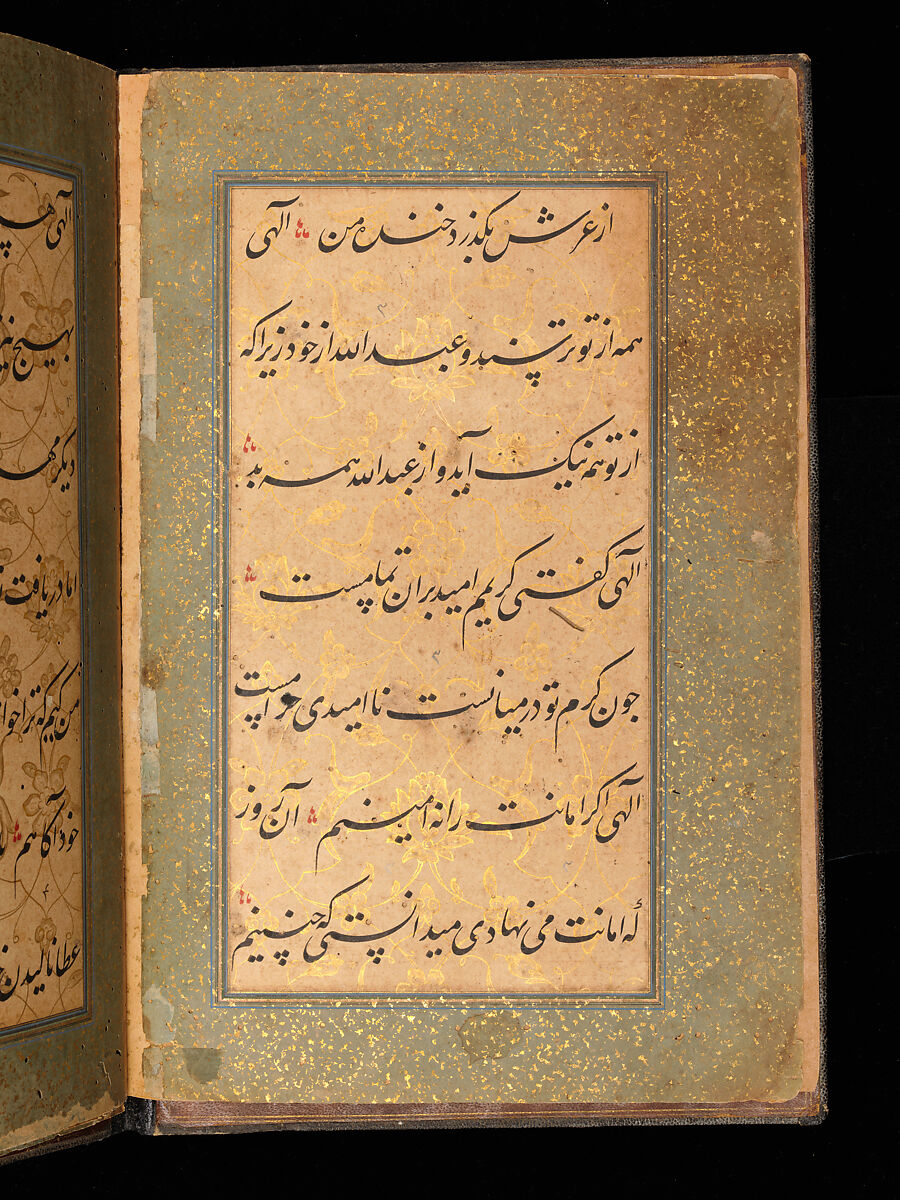 از عرش بگذرد خنده من الهی
همه از تو ترسند و عبد الله از خود زیرا که
از تو همه نیک آید و از عبد الله همه بد
الهی گفتی کریمم امید بران تمامست
چون کرم تو در میانست ناامیدی حرامست
الهی اکر امانت را نه امینم آن روز
که امانت می نهادی میدانستی که چنینم
الهی
بهیچ
دیکر
اما دریافت
من کیم که ترا خوا
خود آکاهم
عطا نالیدن